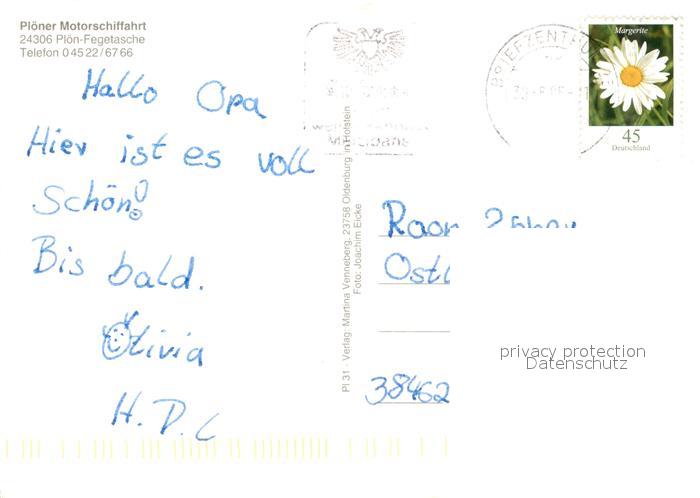 Plöner Motorschiffahrt
24306 Plön-Fegetasche
Telefon 0 45 22 / 67 66
Hallo Opa
Hier ist es voll
Schön!
Bis bald.
Olivia
H. D. L
Pl 31 · Verlag: Martina Venneberg, 23758 Oldenburg in Holstein
Foto: Joachim Eicke
BRIEFZENTRUM
Margerite
45
Deutschland
38462
privacy protection
Datenschutz